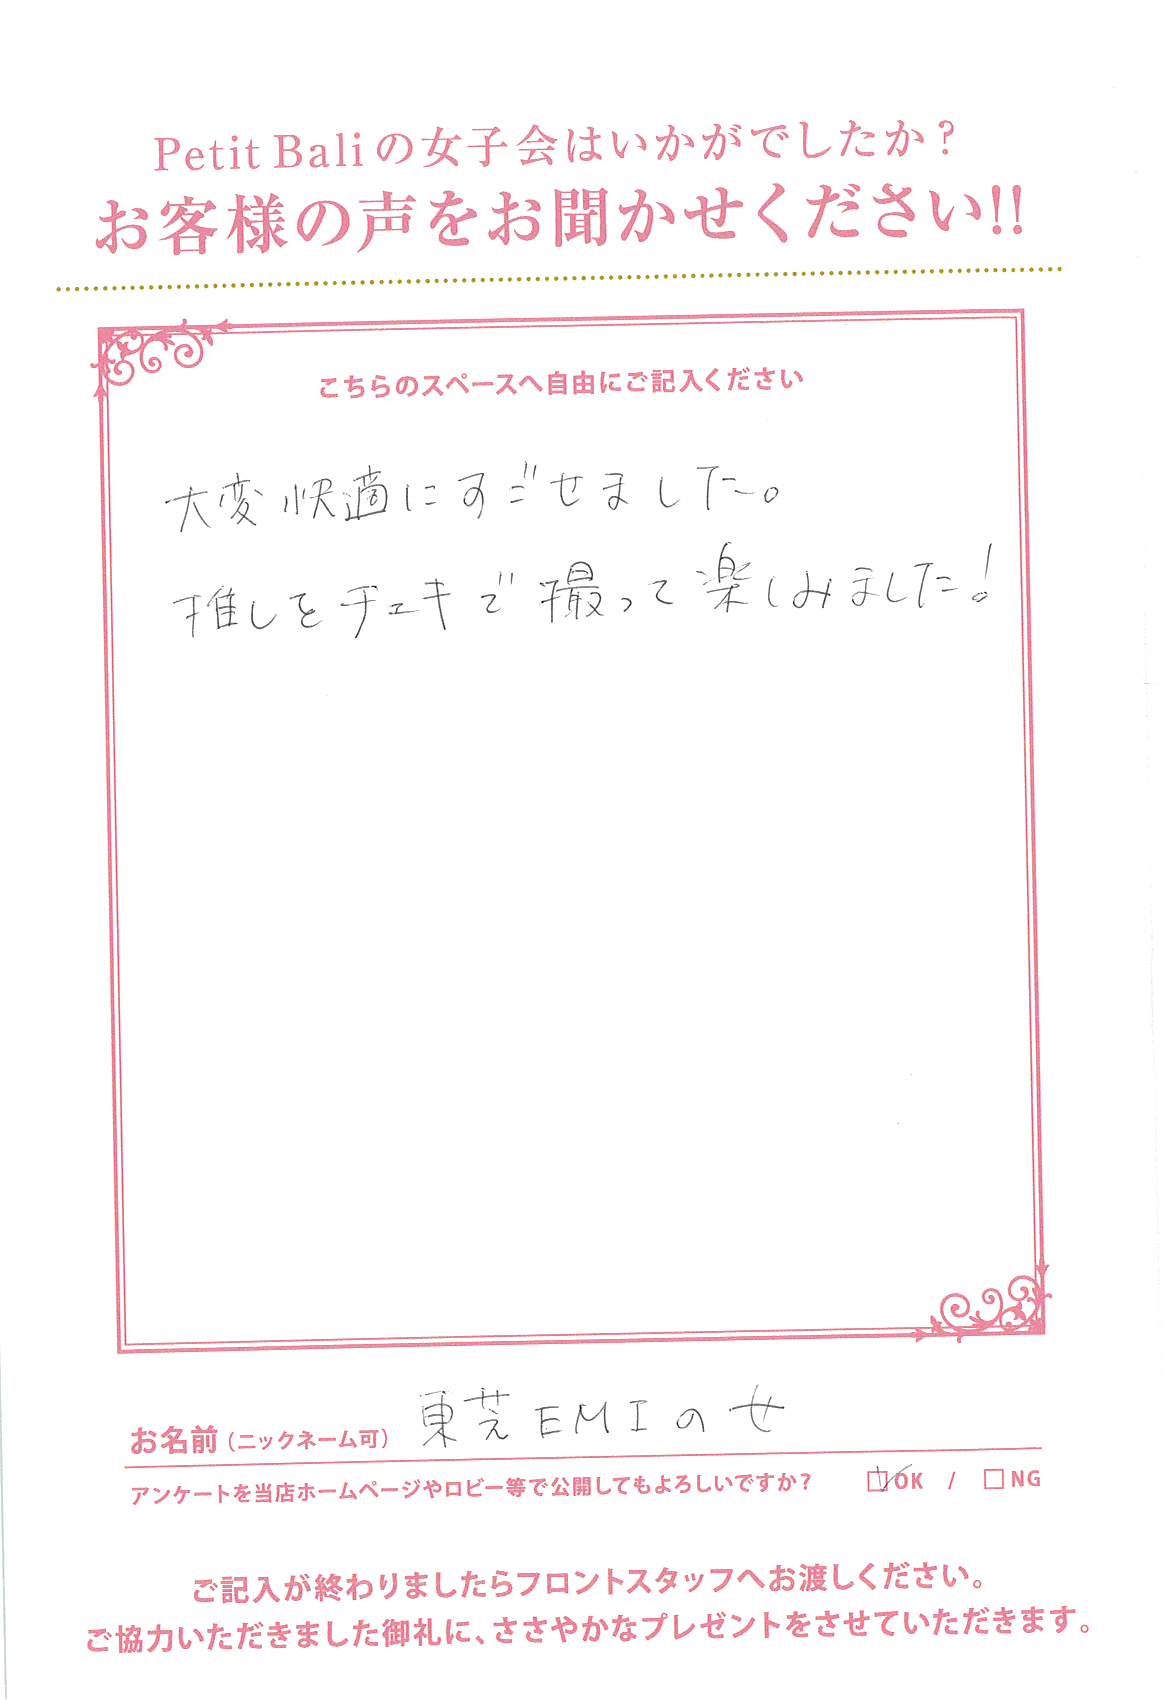 Petit Baliの女子会はいかがでしたか？
お客様の声をお聞かせください!!
こちらのスペースへ自由にご記入ください
大変快適にすごせました。
推しをチェキで撮って楽しみました!
お名前（ニックネーム可） 東芝EMIの女
アンケートを当店ホームページやロビー等で公開してもよろしいですか？ ☑OK / □NG
ご記入が終わりましたらフロントスタッフへお渡しください。
ご協力いただきました御礼に、ささやかなプレゼントをさせていただきます。